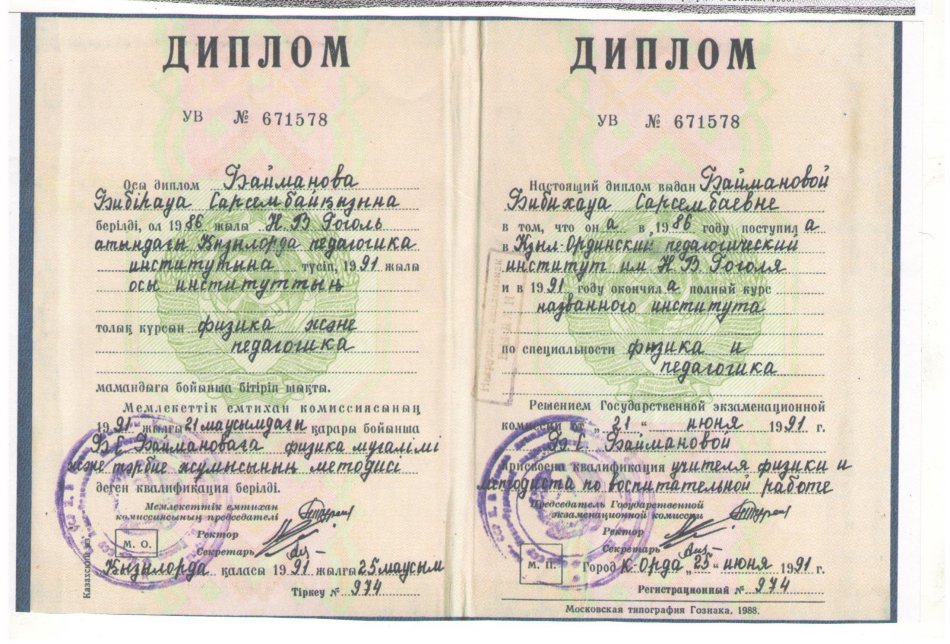 ДИПЛОМ
УВ № 671578
Осы диплом Байманова
Бибіхауа Сарсембайқызына
берілді, ол 1986 жылы Н.В Гоголь
атындағы Қызылорда педагогика
институтына түсіп, 1991 жылы
осы институттың
толық курсын физика және
педагогика
мамандығы бойынша бітіріп шықты.
Мемлекеттік емтихан комиссиясының
1991 жылғы 21 маусымдағы қарары бойынша
Б С Баймановаға физика мұғалімі
және тәрбие жұмысының методисі
деген квалификация берілді.
Мемлекеттік емтихан
комиссиясының председателі
Ректор
М. О.
Секретарь
Қызылорда қаласы 1991 жылғы 25 маусым
Тіркеу № 974
ДИПЛОМ
УВ № 671578
Настоящий диплом выдан Баймановой
Бибихауа Сарсембаевне
в том, что она в 1986 году поступила
в Кзыл-Ординский педагогический
институт им Н.В. Гоголя
и в 1991 году окончила полный курс
названного института
по специальности физика и
педагогика
Решением Государственной экзаменационной
комиссии от „21“ июня 1991 г.
Б С. Баймановой
присвоена квалификация учителя физики и
методиста по воспитательной работе
Председатель Государственной
экзаменационной комиссии
Ректор
Секретарь
М. П.
Город К-Орда „25“ июня 1991 г.
Регистрационный № 974
Московская типография Гознака. 1988.